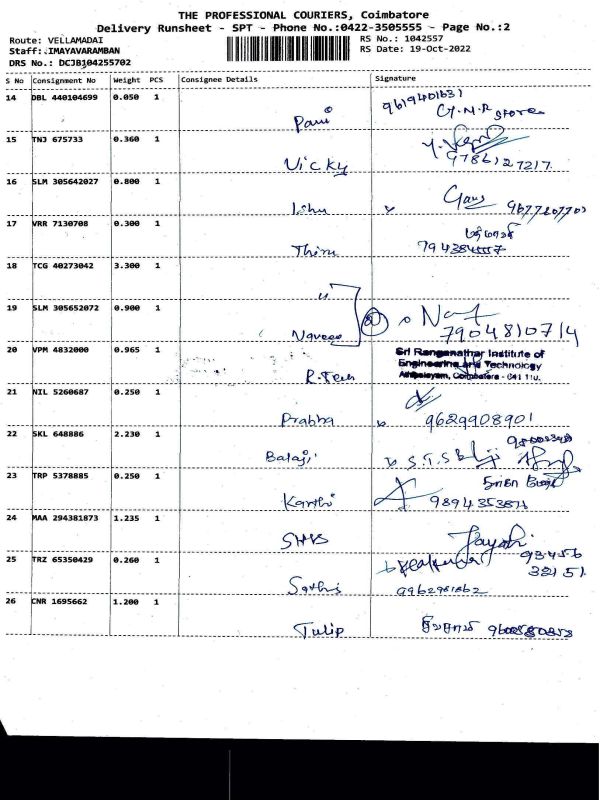 THE PROFESSIONAL COURIERS, Coimbatore
Delivery Runsheet - SPT - Phone No.:0422-3505555 - Page No.:2
Route: VELLAMADAI
RS No.: 1042557
Staff: IMAYAVARAMBAN
RS Date: 19-Oct-2022
DRS No.: DCJB104255702
S No Consignment No Weight PCS Consignee Details Signature
14 DBL 440104699 0.050 1
9619401631
G.M.R Store
15 TNJ 675733 0.360 1
Vicky 9786127217
16 SLM 305642027 0.800 1
17 VRR 7130708 0.300 1
18 TCG 40273042 3.300 1
"
19 SLM 305652072 0.900 1
Naveen 7904810714
20 VPM 4832000 0.965 1
Sri Ranganathar Institute of
Engineering and Technology
Athipalayam, Coimbatore - 641 110.
R.Tech
21 NIL 5260687 0.250 1
Prabha 9629908901
22 SKL 648886 2.230 1
Balaji
23 TRP 5378885 0.250 1
Karthi
24 MAA 294381873 1.235 1
93456
32151
25 TRZ 65350429 0.260 1
9962981862
26 CNR 1695662 1.200 1
Tulip